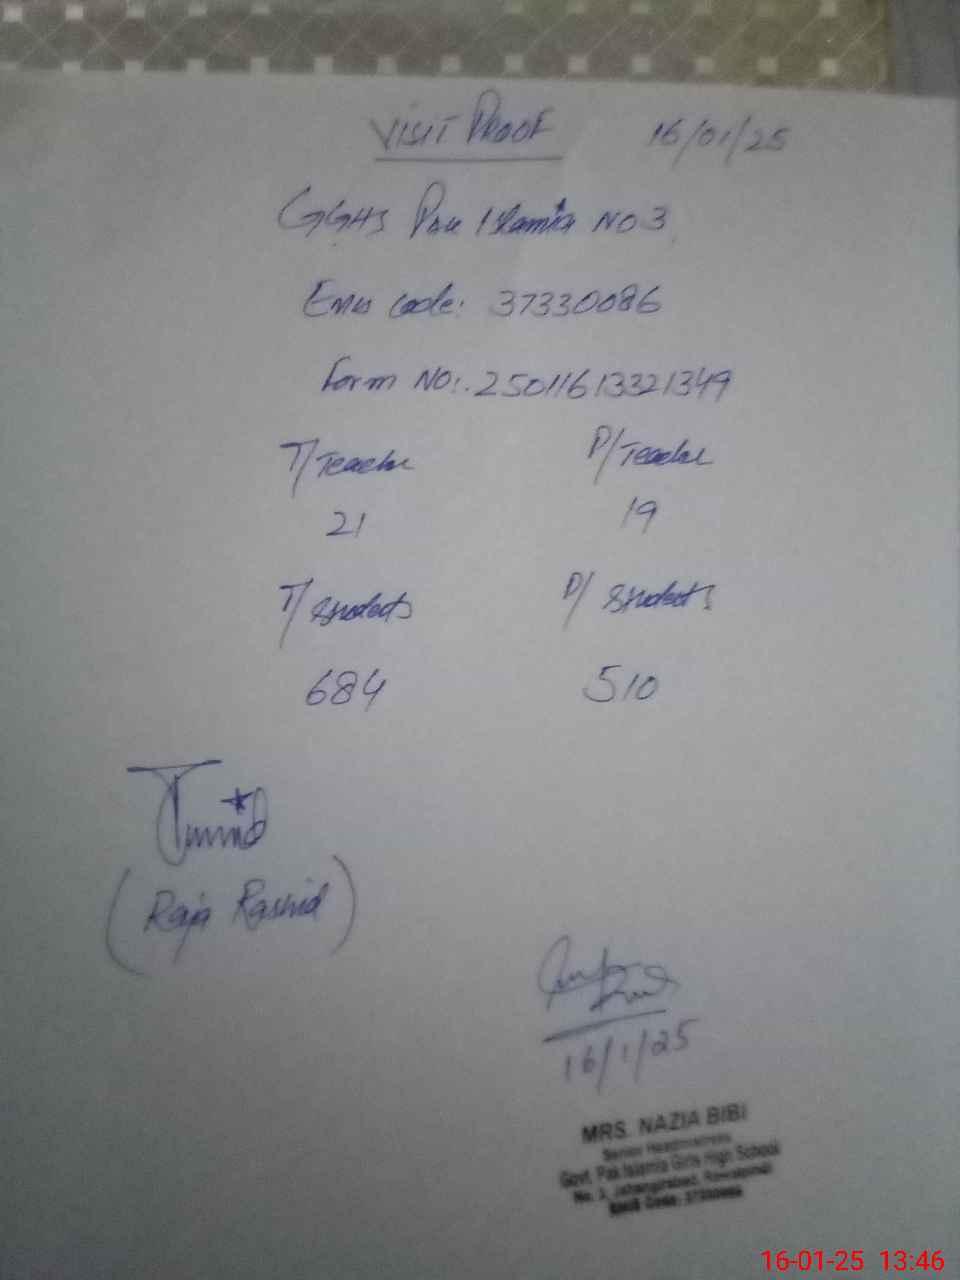 VISIT PROOF 16/01/25
GGHS Pak Islamia NO 3
Emis Code: 37330086
Form NO:. 25011613321349
T/Teacher P/Teacher
21 19
T/Students P/Students
684 510
(Raja Rashid)
16/1/25
MRS. NAZIA BIBI
Senior Headmistress
Govt. Pak Islamia Girls High School
No. 3, Jahangirabad, Rawalpindi
EMIS Code: 37330086
16-01-25 13:46